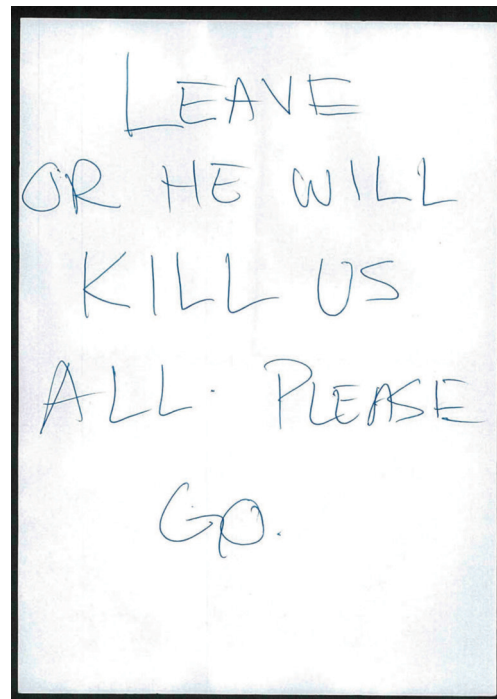 LEAVE
OR HE WILL
KILL US
ALL. PLEASE
GO.